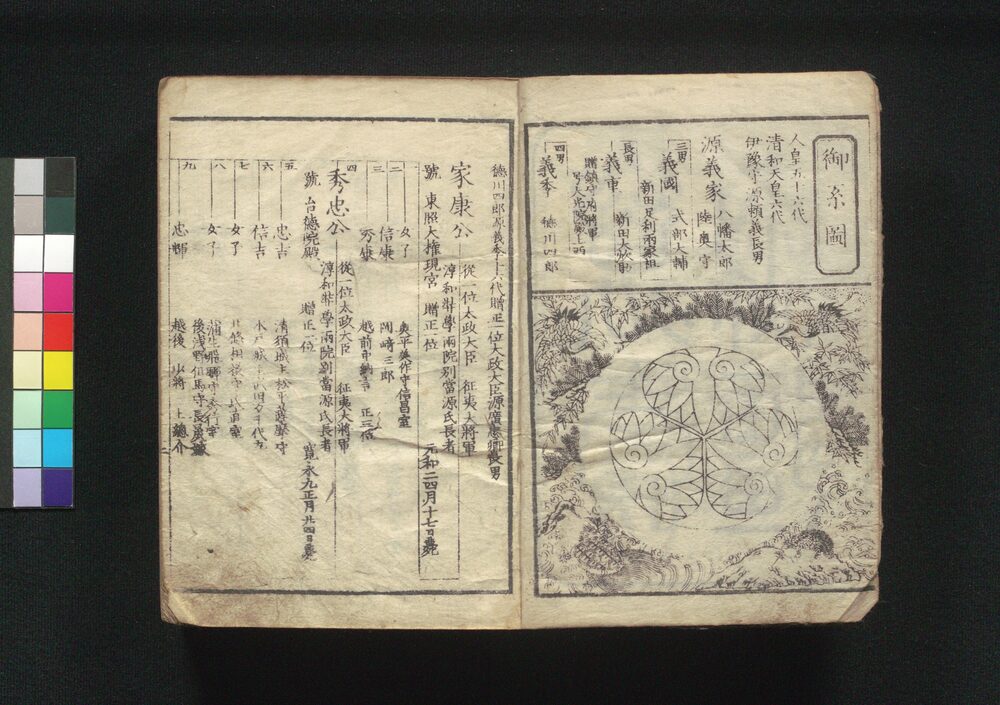 御系圖
人皇五十六代
清和天皇六代
伊豫守源頼義長男
源義家
八幡太郎
陸奥守
三男
義國
式部大輔
新田足利兩家祖
長男
義重
新田大炊助
贈鎮守府將軍
四男
義季
徳川四郎
徳川四郎源義季十六代贈正一位太政大臣源廣忠卿長男
家康公
從一位太政大臣 征夷大將軍
淳和奨學兩院別當源氏長者
號 東照大権現宮 贈正一位
元和二四月十七日薨
一
女子
奥平美作守信昌室
二
信康
岡崎三郎
三
秀康
越前中納言 正三位
四
秀忠公
從一位太政大臣 征夷大將軍
淳和奨學兩院別當源氏長者
號 台德院殿 贈正一位
寛永九正月廿四日薨
五
忠吉
清須城主松平薩摩守
六
信吉
七
女子
八
女子
蒲生飛騨守秀行室
後浅野但馬守長晟室
九
忠輝
越後少將 上總介